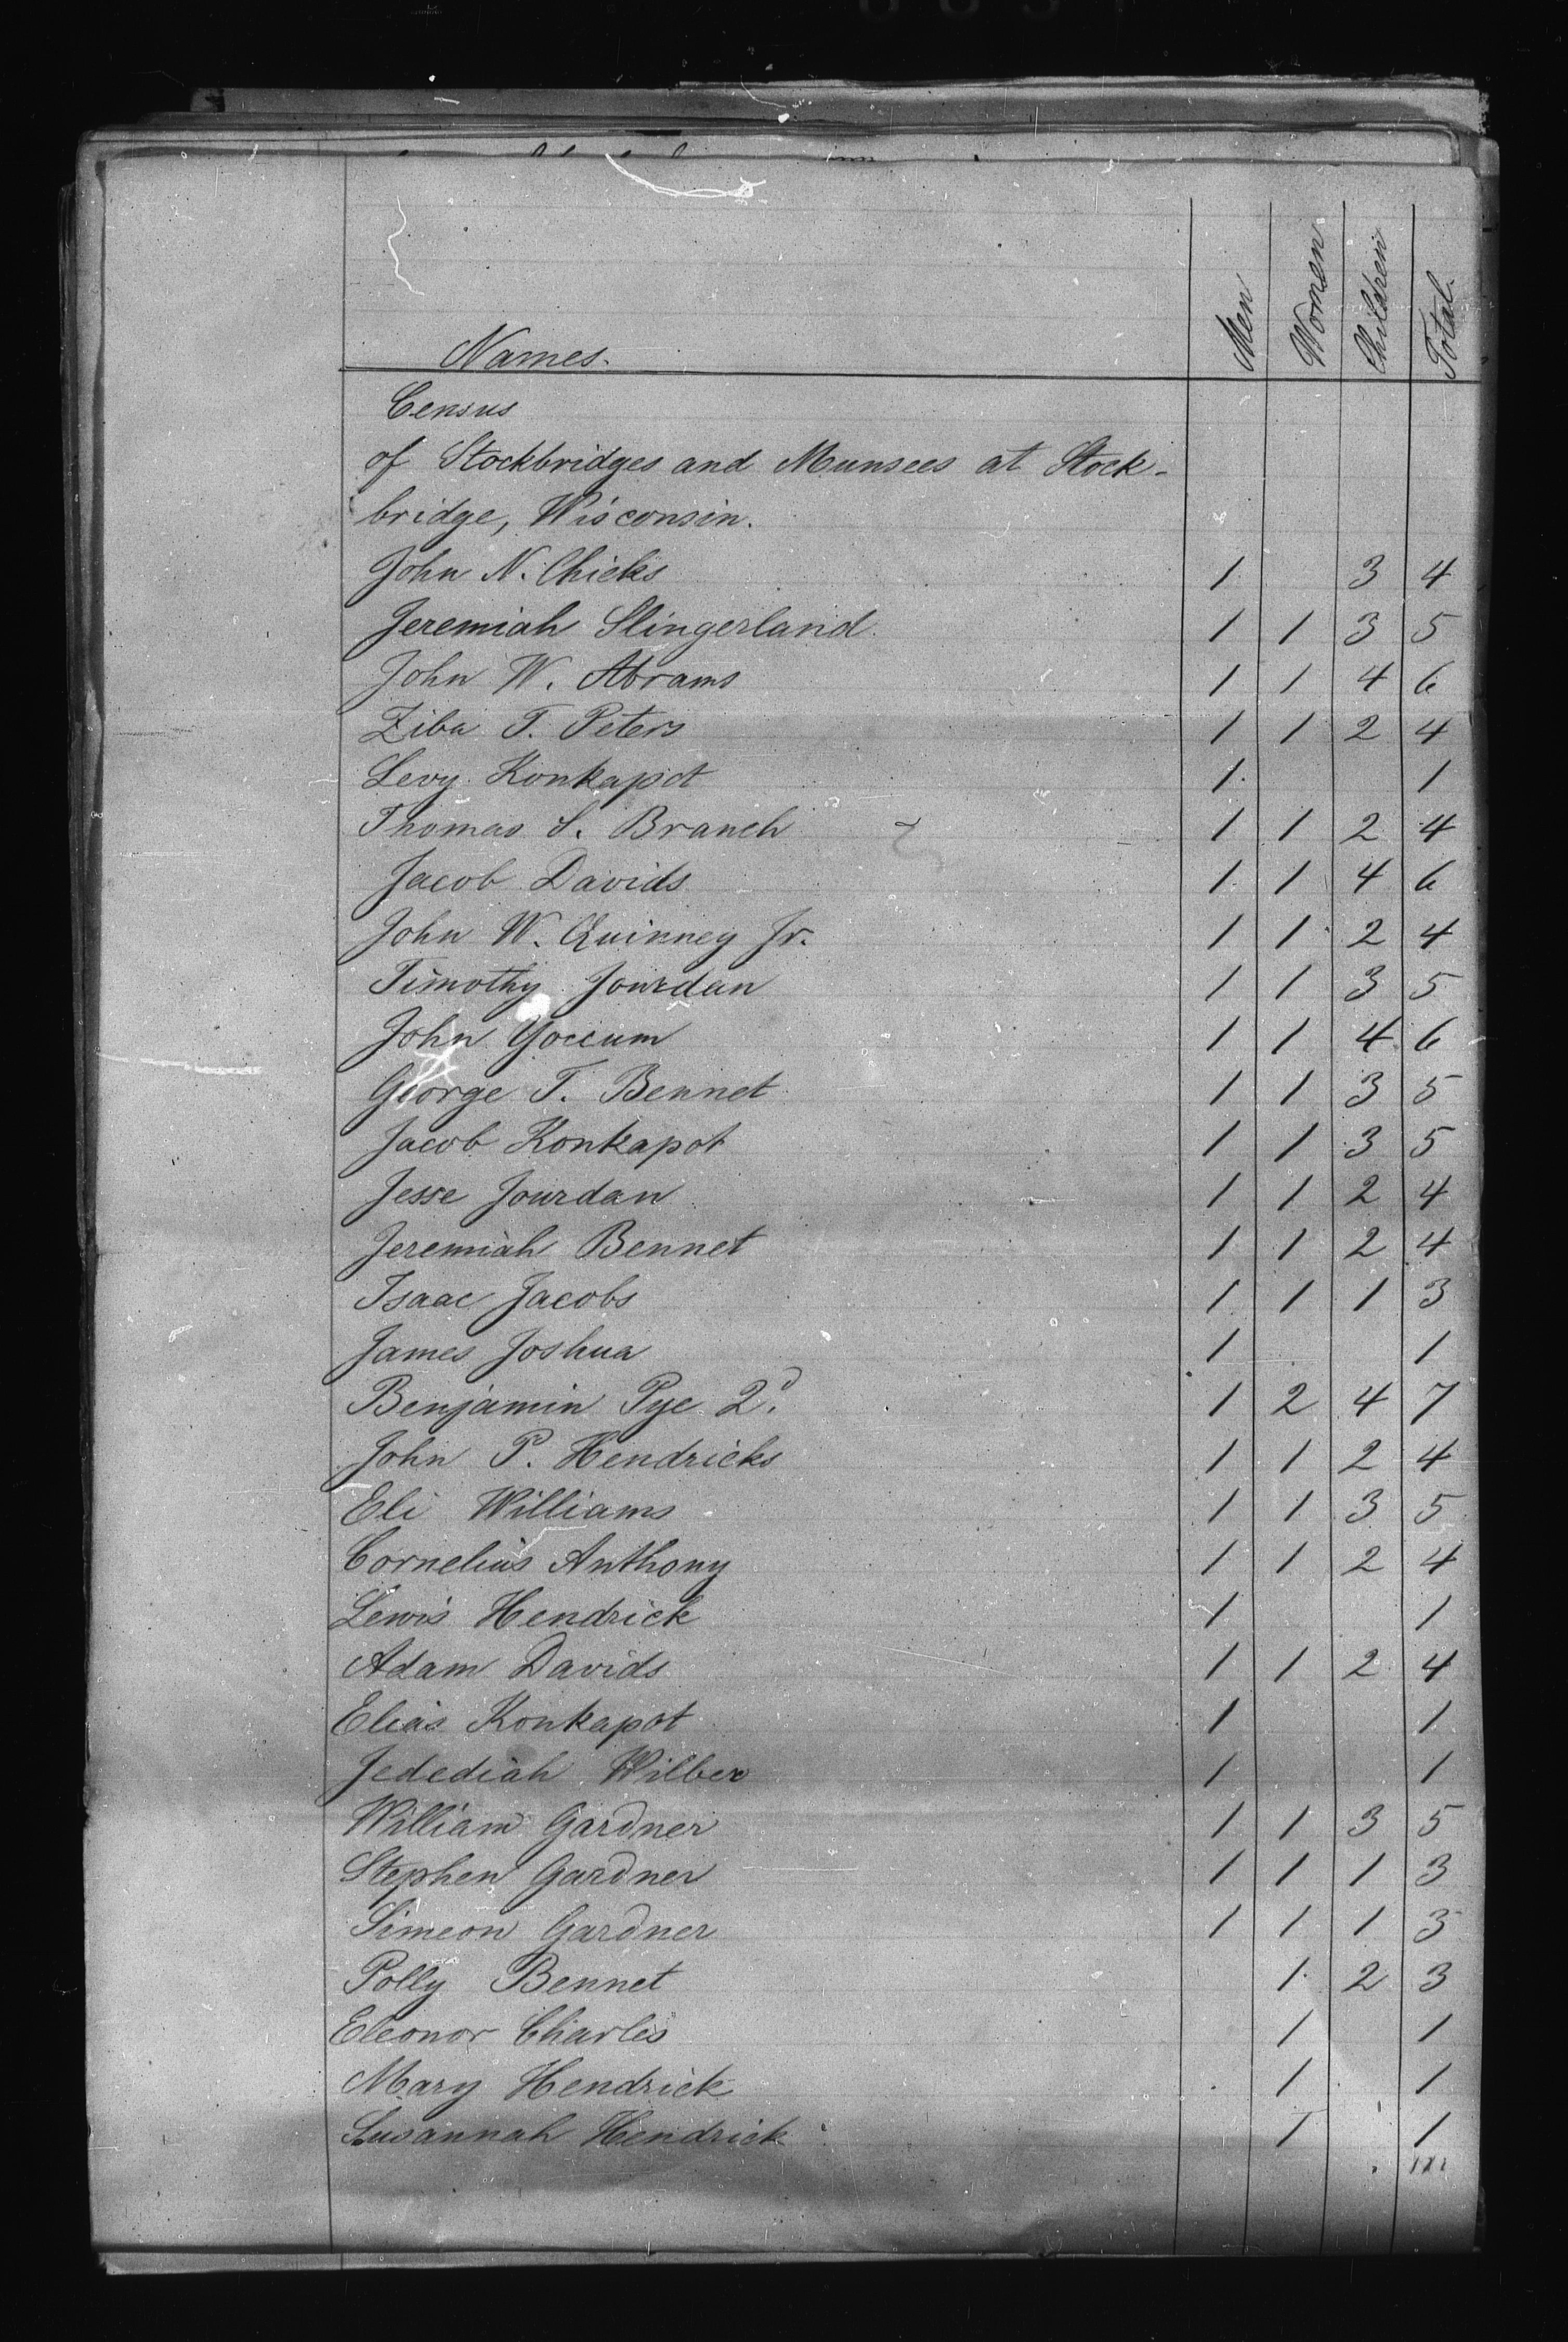 Names. Men Women Children Total.
Census
of Stockbridges and Munsees at Stock-
bridge, Wisconsin.
John N. Chicks 1 3 4
Jeremiah Slingerland. 1 1 3 5
John W. Abrams 1 1 4 6
Ziba T. Peters 1 1 2 4
Levy Konkapot 1 1
Thomas S. Branch 1 1 2 4
Jacob Davids 1 1 4 6
John W. Quinney Jr. 1 1 2 4
Timothy Jourdan 1 1 3 5
John Yoccum 1 1 4 6
George T. Bennet 1 1 3 5
Jacob Konkapot 1 1 3 5
Jesse Jourdan 1 1 2 4
Jeremiah Bennet 1 1 2 4
Isaac Jacobs 1 1 1 3
James Joshua 1 1
Benjamin Pye 2d. 1 2 4 7
John P. Hendricks 1 1 2 4
Eli Williams 1 1 3 5
Cornelius Anthony 1 1 2 4
Lewis Hendrick 1 1
Adam Davids 1 1 2 4
Elias Konkapot 1 1
Jedediah Wilber 1 1
William Gardner 1 1 3 5
Stephen Gardner 1 1 1 3
Simeon Gardner 1 1 1 3
Polly Bennet 1 2 3
Eleonor Charles 1 1
Mary Hendrick 1 1
Susannah Hendrick 1 1